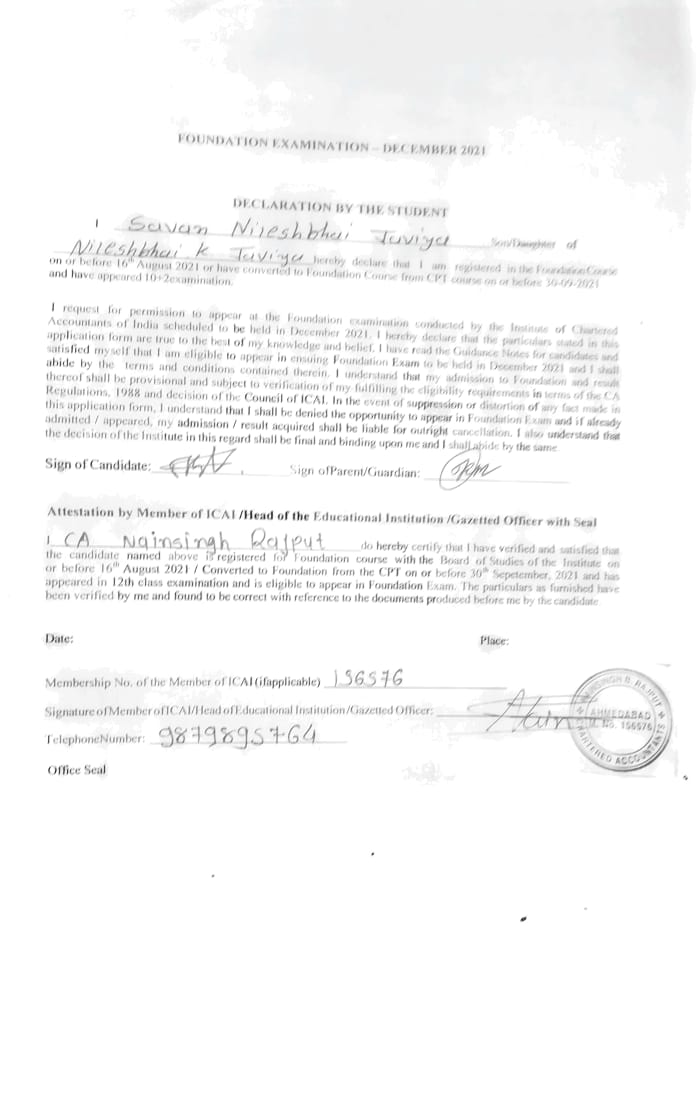 FOUNDATION EXAMINATION – DECEMBER 2021
DECLARATION BY THE STUDENT
I Savan Nileshbhai Javiya Son/Daughter of
Nileshbhai K Javiya hereby declare that I am registered in the Foundation Course
on or before 16th August 2021 or have converted to Foundation Course from CPT course on or before 30-09-2021
and have appeared 10+2examination.
I request for permission to appear at the Foundation examination conducted by the Institute of Chartered
Accountants of India scheduled to be held in December 2021. I hereby declare that the particulars stated in this
application form are true to the best of my knowledge and belief. I have read the Guidance Notes for candidates and
satisfied myself that I am eligible to appear in ensuing Foundation Exam to be held in December 2021 and I shall
abide by the terms and conditions contained therein. I understand that my admission to Foundation and result
thereof shall be provisional and subject to verification of my fulfilling the eligibility requirements in terms of the CA
Regulations, 1988 and decision of the Council of ICAI. In the event of suppression or distortion of any fact made in
this application form, I understand that I shall be denied the opportunity to appear in Foundation Exam and if already
admitted / appeared, my admission / result acquired shall be liable for outright cancellation. I also understand that
the decision of the Institute in this regard shall be final and binding upon me and I shall abide by the same
Sign of Candidate: Sign ofParent/Guardian:
Attestation by Member of ICAI /Head of the Educational Institution /Gazetted Officer with Seal
I CA Nainsingh Rajput do hereby certify that I have verified and satisfied that
the candidate named above is registered for Foundation course with the Board of Studies of the Institute on
or before 16th August 2021 / Converted to Foundation from the CPT on or before 30th Sepetember, 2021 and has
appeared in 12th class examination and is eligible to appear in Foundation Exam. The particulars as furnished have
been verified by me and found to be correct with reference to the documents produced before me by the candidate
Date: Place:
Membership No. of the Member of ICAI (ifapplicable) 156576
Signature of Member of ICAI/Head of Educational Institution /Gazetted Officer:
TelephoneNumber: 9879895764
Office Seal
NAINSINGH B. RAJPUT
AHMEDABAD
M. No. 156576
CHARTERED ACCOUNTANTS